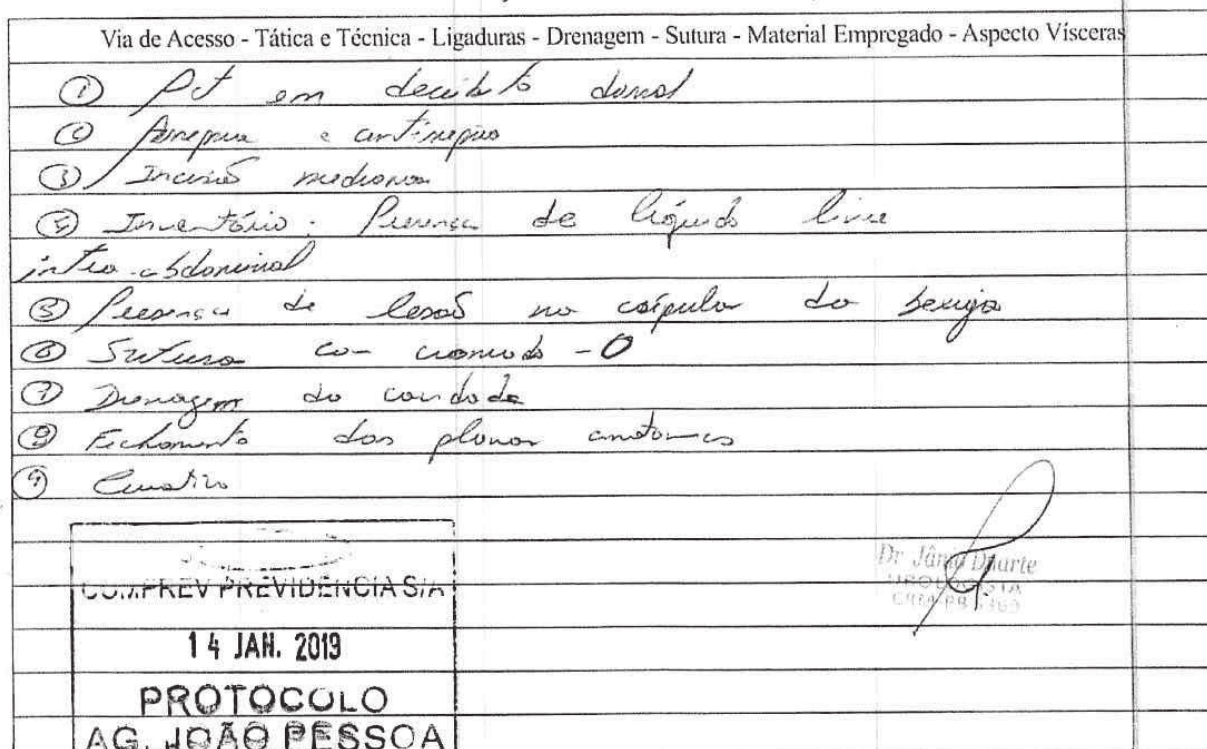 Via de Acesso - Tática e Técnica - Ligaduras - Drenagem - Sutura - Material Empregado - Aspecto Vísceras
① Pct em decúbito dorsal
② Assepsia e antissepsia
③ Incisão mediana
④ Inventário: Presença de líquido livre
intra-abdominal
⑤ Presença de lesão na cúpula da bexiga
⑥ Sutura com cromado - 0
⑦ Drenagem da cavidade
⑧ Fechamento dos planos anatomicos
⑨ Curativo
Dr Jânio Duarte
UROLOGISTA
COMPREV PREVIDÊNCIA S/A
14 JAN. 2019
PROTOCOLO
AG. JOÃO PESSOA